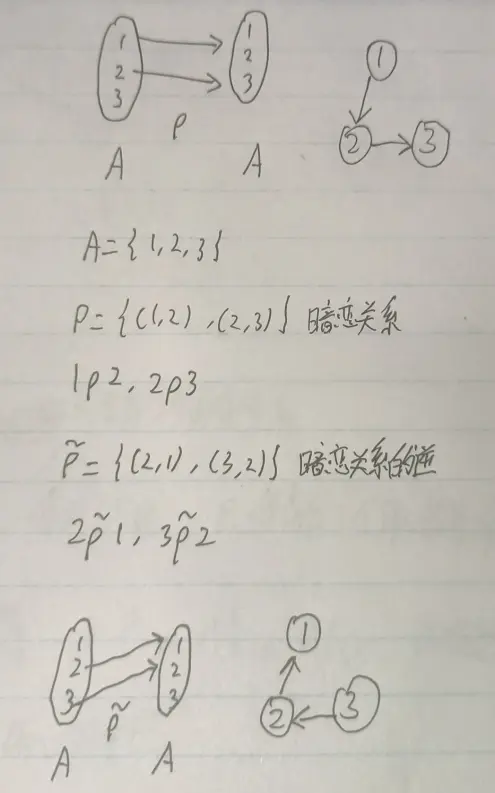 1 1
2 2
3 3
ρ
A A
1
2 3
A={1,2,3}
ρ={(1,2),(2,3)} 暗恋关系
1ρ2, 2ρ3
ρ̃={(2,1),(3,2)} 暗恋关系的逆
2ρ̃1, 3ρ̃2
1 1
2 2
3 3
ρ̃
A A
1
2 3